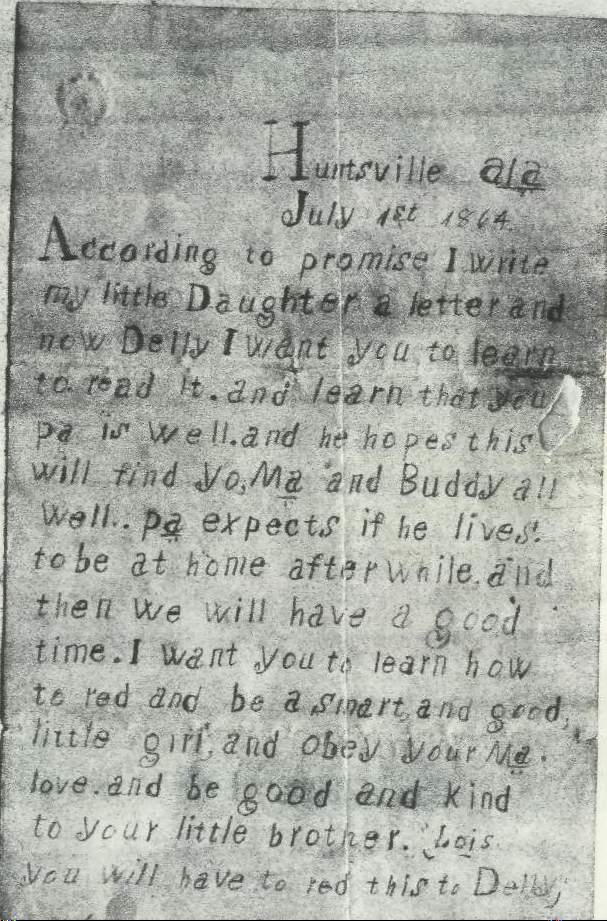 Huntsville Ala
July 1st 1864.
According to promise I write
my little Daughter a letter and
now Delly I want you to learn
to read it. and learn that you
pa is well. and he hopes this
will find yo, Ma and Buddy all
well.. pa expects if he lives.
to be at home after while. and
then we will have a good
time. I want you to learn how
to red and be a smart, and good,
little girl, and obey your Ma.
love. and be good and kind
to your little brother. Lois
you will have to red this to Delly,